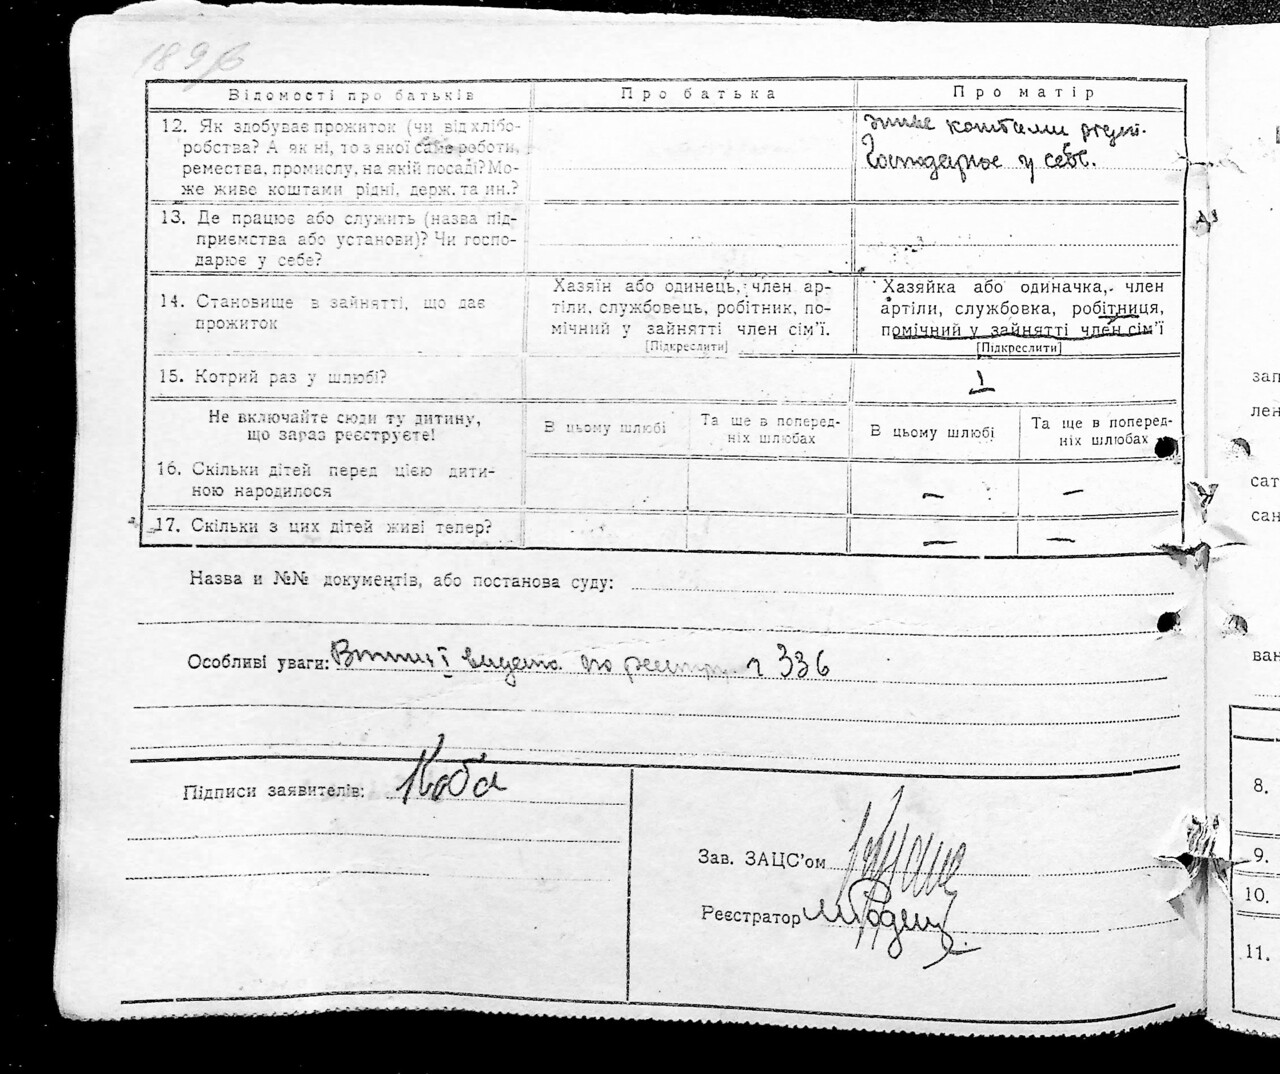 189
Відомості про батьків
Про батька
Про матір
12. Як здобуває прожиток (чи від хлібо-
робства? А як ні, то з якої саме роботи,
ремества, промислу, на якій посаді? Мо-
же живе коштами рідні, держ. та ин.?
живе коштами
Господарює у себе.
13. Де працює або служить (назва під-
приємства або установи)? Чи госпо-
дарює у себе?
14. Становище в зайнятті, що дає
прожиток
Хазяїн або одинець, член ар-
тілі, службовець, робітник, по-
мічний у зайнятті член сім'ї.
[Підкреслити]
Хазяйка або одиначка, член
артілі, службовка, робітниця,
помічний у зайнятті член сім'ї
[Підкреслити]
15. Котрий раз у шлюбі?
1
Не включайте сюди ту дитину,
що зараз реєструєте!
В цьому шлюбі
Та ще в поперед-
ніх шлюбах
В цьому шлюбі
Та ще в поперед-
ніх шлюбах
16. Скільки дітей перед цією дити-
ною народилося
—
—
17. Скільки з цих дітей живі тепер?
—
—
Назва и №№ документів, або постанова суду:
Особливі уваги: видано по реєстру 336
Підписи заявителів: Коба
Зав. ЗАЦС'ом
Реєстратор
зап
лен
сат
сан
ван
8.
9.
10.
11.